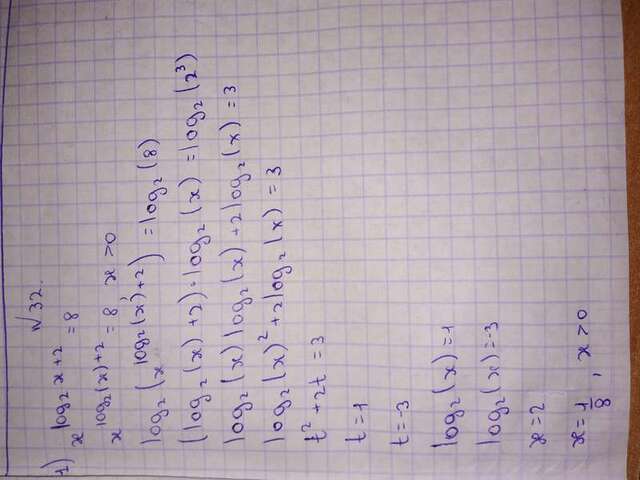 №32.
1) x^(log₂x+2) = 8
x^(log₂(x)+2) = 8, x>0
log₂(x^(log₂(x)+2)) = log₂(8)
(log₂(x)+2)·log₂(x) = log₂(2³)
log₂(x)log₂(x)+2log₂(x) = 3
log₂(x)²+2log₂(x) = 3
t²+2t = 3
t=1
t=-3
log₂(x)=1
log₂(x)=-3
x=2
x=1/8, x>0